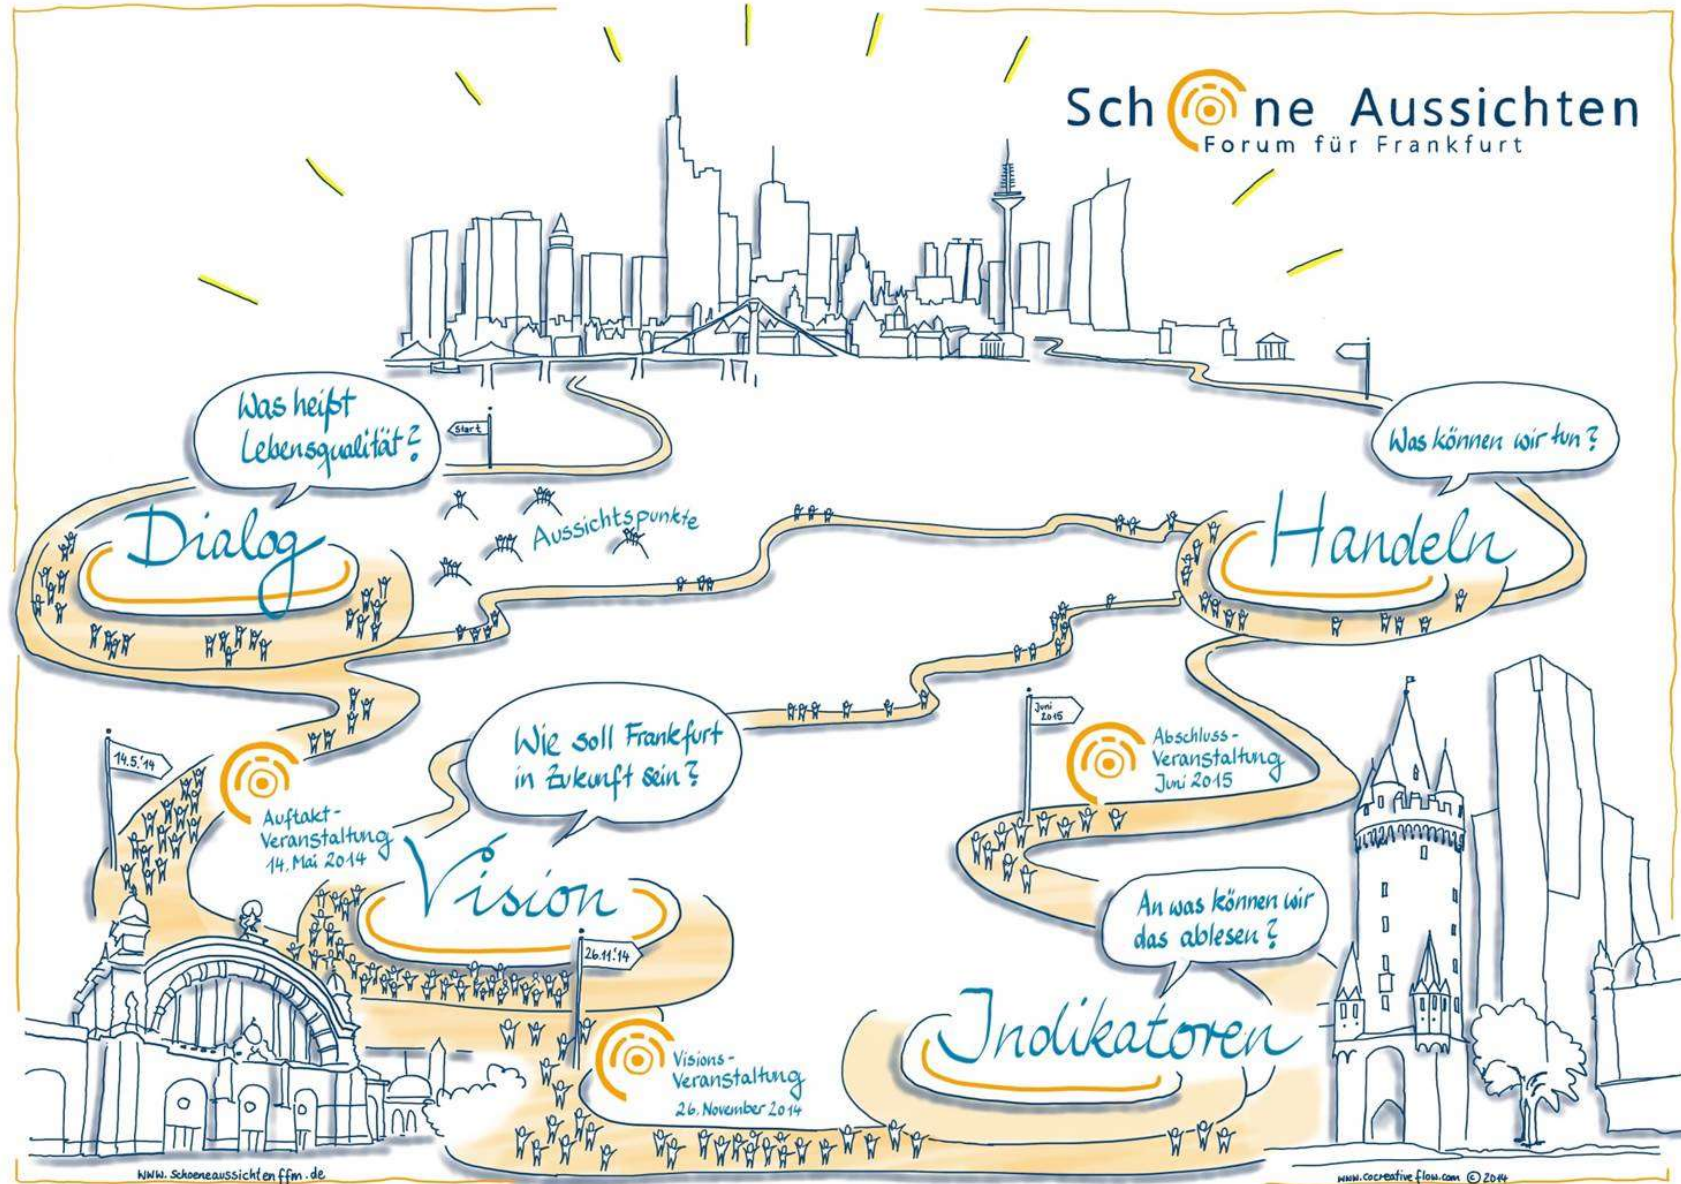 Schöne Aussichten
Forum für Frankfurt
Was heißt
Lebensqualität?
Start
Was können wir tun?
Dialog
Aussichtspunkte
Handeln
14.5.'14
Auftakt-
Veranstaltung
14. Mai 2014
Wie soll Frankfurt
in Zukunft sein?
Juni
2015
Abschluss-
Veranstaltung
Juni 2015
Vision
26.11.'14
An was können wir
das ablesen?
Indikatoren
Visions-
Veranstaltung
26. November 2014
www.schoeneaussichtenffm.de
www.cocreativeflow.com © 2014